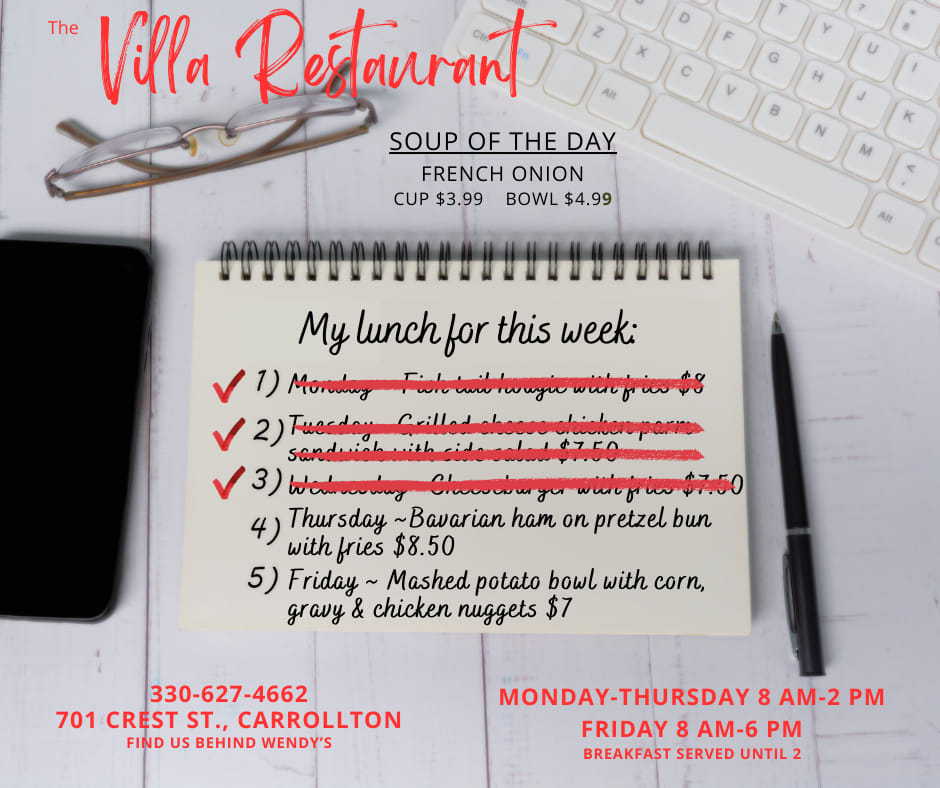 The
Villa Restaurant
SOUP OF THE DAY
FRENCH ONION
CUP $3.99 BOWL $4.99
My lunch for this week:
1) Monday ~ Fish tail hougie with fries $8
2) Tuesday ~ Grilled cheese chicken parm
sandwich with side salad $7.50
3) Wednesday ~ Cheeseburger with fries $7.50
4) Thursday ~Bavarian ham on pretzel bun
with fries $8.50
5) Friday ~ Mashed potato bowl with corn,
gravy & chicken nuggets $7
330-627-4662
701 CREST ST., CARROLLTON
FIND US BEHIND WENDY'S
MONDAY-THURSDAY 8 AM-2 PM
FRIDAY 8 AM-6 PM
BREAKFAST SERVED UNTIL 2
Ctrl
Fn
Alt
Z
X
C
V
B
N
M
D
F
G
H
J
K
T
Y
U
I
Alt